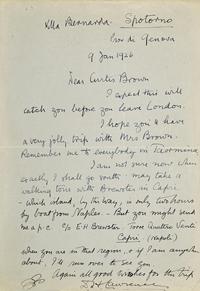 Villa Bernarda. Spotorno
Prov di Genova
9 Jan 1926
Dear Curtis Brown
I expect this will
catch you before you leave London.
I hope you'll have
a very jolly trip with Mrs Brown.
Remember me to everybody in Taormina.
I am not sure now when
exactly I shall go south: may take a
walking tour with Brewster in Capri
- which island, by the way, is only two hours
by boat from Naples. - But you might send
me a p.c. c/o E H Brewster Torre Quattro Venti
Capri (Napoli)
when you are in that region, & if I am anywhere
about, I'll run over to see you.
Again all good wishes for the trip
D H Lawrence